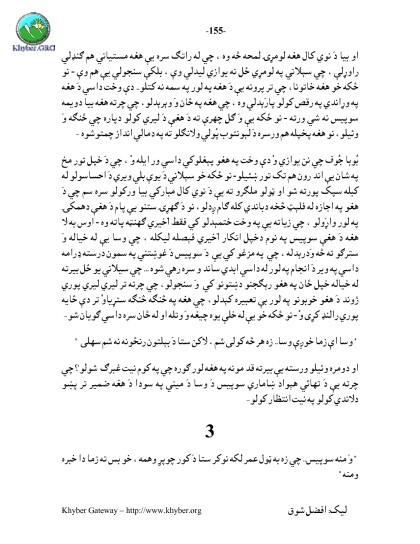 Khyber.ORG
-155-
او بيا دَ نوي کال هغه لومړۍ لمحه څه وه ، چي له رانګ سره يې هغه مستياني هم ګنډلي
راوړلې ، چي سيلاني په لومړي ځل نه يوازي ليدلي وې ، بلکې سنجولي يې هم وې - نو
ځکه خو هغه خاتونا ، چي تر پرونه يې دَ هغه په لور په سمه نه کتلو.. دې وخت داسي دَ هغه
په وړاندي په رقص کولو پاڼېدلې وه ، چي هغه په ځان وَ وېرېدلو ، چي چرته هغه بيا دويمه
سوپيس نه شي ورته - نو ځکه يې وَ ګل چهرې ته دَ هغې دَ ليري کولو دپاره چي څنګه وَ
وئيلو ، نو هغه پخپله هم ورسره دَ لېونتوب ټولي ولانګلو ته په دمالي انداز چمتو شوه -
ټوبا جُوف چي نن يوازي وُ دې وخت په هغو پېغلو کي داسي ورايله وُ ، چي دَ خپل تور مخ
په شان يې اند رون هم تک تور ښئيلو - نو ځکه خو سيلاني دَ يوې بلي ويري دَ احساسولو له
کبله سيک پورته شو او ټولو ملګرو ته يې دَ نوي کال مبارکي بيا ورکولو سره سم چي دَ
هغو په اجازه له فلېټ څخه دباندي کله ګام ږدلو ، نو دَ ګهړۍ ستنو يې پام دَ هغې دهمکۍ
په لور واړولو ، چي زياته يې په وخت ختمېدلو کي فقط اخيري ګهنټه پاته وه - اوس به لا
هغه دَ هغې سوپيس په نوم دخپل انکار اخيري فيصله ليکله ، چي وسا يې له خياله وَ
سترګو ته څه وَ درېدله ، چي په مزغو کي يې دَ سوپيس دَ غوښتني په سمون درسته ډرامه
داسي په وېر دَ انجام په لور له داسي ابدي ساند و سره رهي شوه... چي سيلاني يو ځل بيرته
له خياله خپل ځان په هغو رېګجنو دښتونو کي وَ سنجولو ، چي چرته تر ليري ليري پوري
ژوند دَ هغو خوبونو په لور يې تعبيره کېدلو ، چي هغه په څنګه څنګه ستړياوُ تر دې ځايه
پوري رالنډ کړي وُ - نو ځکه خو يې له خلې يوه چيغه وَ وتله او له ځان سره داسي ګويان شو -
"وسا اې زما خوږې وسا.. زه هر څه کولی شم ، لاکن ستا دَ بېلتون رنځونه نه شم سهلی "
او دومره وئيلو ورسته يې بيرته قد مونه په هغه لور ګوره چي په کوم نيت غبرګ شولو؟ چي
چرته يې دَ تهائي هېواد ښاماري سوپيس دَ وسا دَ ميني په سودا دَ هغه ضمير تر پښو
دلاندي کولو په نيت انتظار کولو -
3
"وَ منه سوپيس.. چي زه به ټول عمر لکه نوکر ستا دَ کور چوپړ وهمه ، خو بس ته زما دا خبره
ومنه "
Khyber Gateway – http://www.khyber.org
ليک: افضل شوق